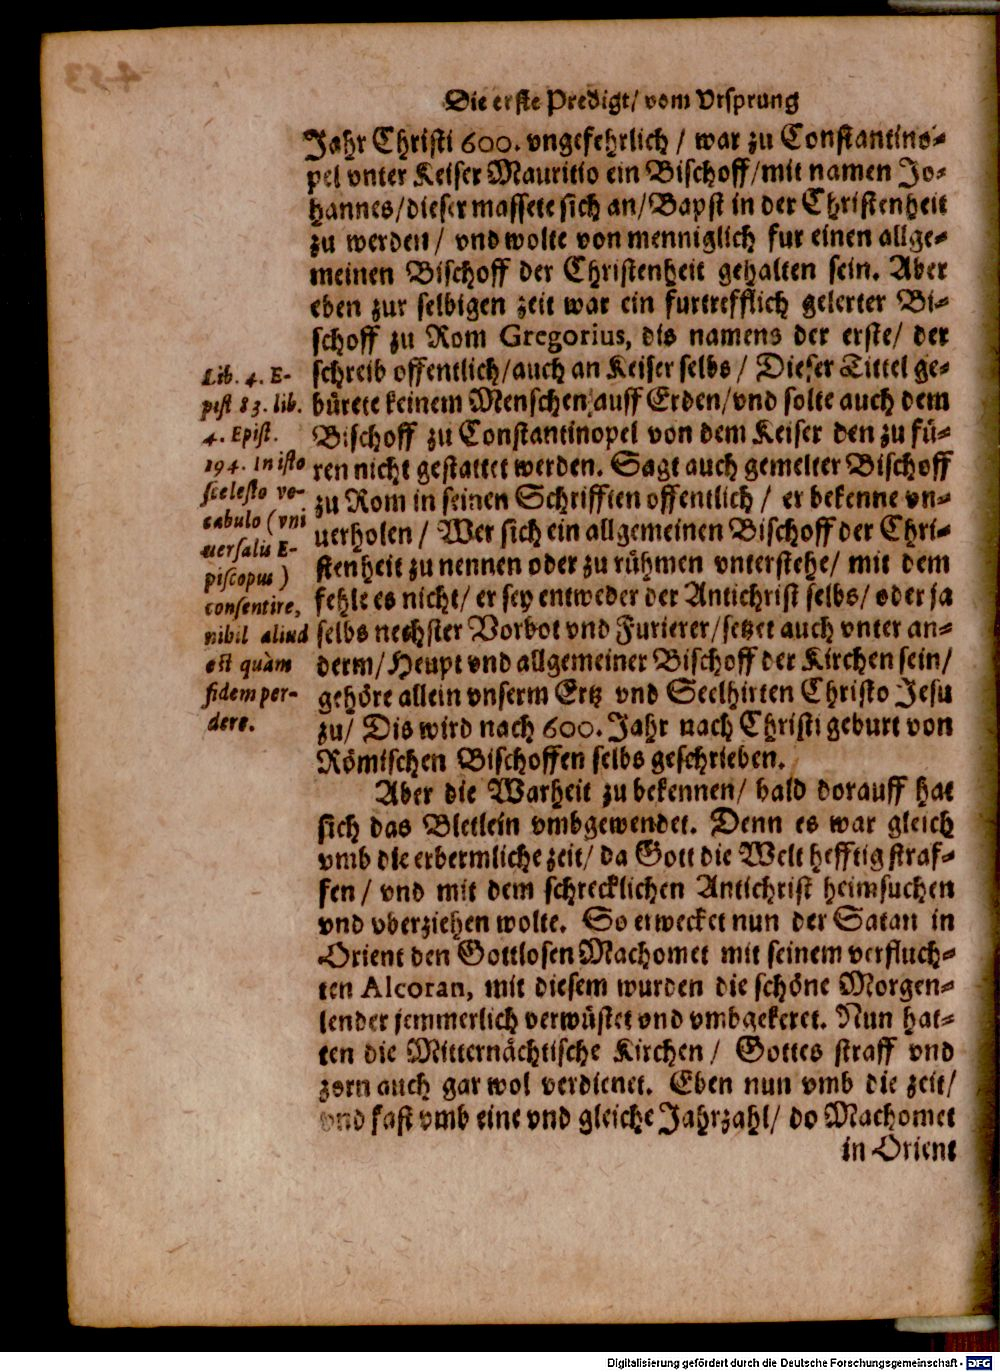 Die erste Predigt/ vom Vrsprung
Jahr Christi 600. vngefehrlich / war zu Constantino-
pel vnter Keiser Mauritio ein Bischoff/mit namen Jo-
hannes/dieser massete sich an/Bapst in der Christenheit
zu werden/ vnd wolte von menniglich fur einen allge-
meinen Bischoff der Christenheit gehalten sein. Aber
eben zur selbigen zeit war ein furtrefflich gelerter Bi-
schoff zu Rom Gregorius, dis namens der erste/ der
schreib offentlich/auch an Keiser selbs / Dieser Tittel ge-
bürete keinem Menschen auff Erden/vnd solte auch dem
Bischoff zu Constantinopel von dem Keiser den zu fü-
ren nicht gestattet werden. Sagt auch gemelter Bischoff
zu Rom in seinen Schrifften offentlich / er bekenne vn-
uerholen / Wer sich ein allgemeinen Bischoff der Chri-
stenheit zu nennen oder zu rühmen vnterstehe/ mit dem
fehle es nicht/ er sey entweder der Antichrist selbs/ oder ja
selbs nechster Vorbot vnd Furierer/setzet auch vnter an-
derm/Heupt vnd allgemeiner Bischoff der Kirchen sein/
gehöre allein vnserm Ertz vnd Seelhirten Christo Jesu
zu/ Dis wird nach 600. Jahr nach Christi geburt von
Römischen Bischoffen selbs geschrieben.
Lib. 4. E-
pist 83. lib.
4. Epist.
194. In isto
scelesto vo-
cabulo (vni
uersalis E-
piscopus )
consentire,
nihil aliud
est quàm
fidem per-
dere.
Aber die Warheit zu bekennen/ bald dorauff hat
sich das Bletlein vmbgewendet. Denn es war gleich
vmb die erbermliche zeit/ da Gott die Welt hefftig straf-
fen / vnd mit dem schrecklichen Antichrist heimsuchen
vnd vberziehen wolte. So erwecket nun der Satan in
Orient den Gottlosen Machomet mit seinem verfluch-
ten Alcoran, mit diesem wurden die schöne Morgen-
lender jemmerlich verwüstet vnd vmbgekeret. Nun hat-
ten die Mitternächtische Kirchen / Gottes straff vnd
zorn auch gar wol verdienet. Eben nun vmb die zeit/
vnd fast vmb eine vnd gleiche Jahrzahl/ do Machomet
in Orient
Digitalisierung gefördert durch die Deutsche Forschungsgemeinschaft - DFG